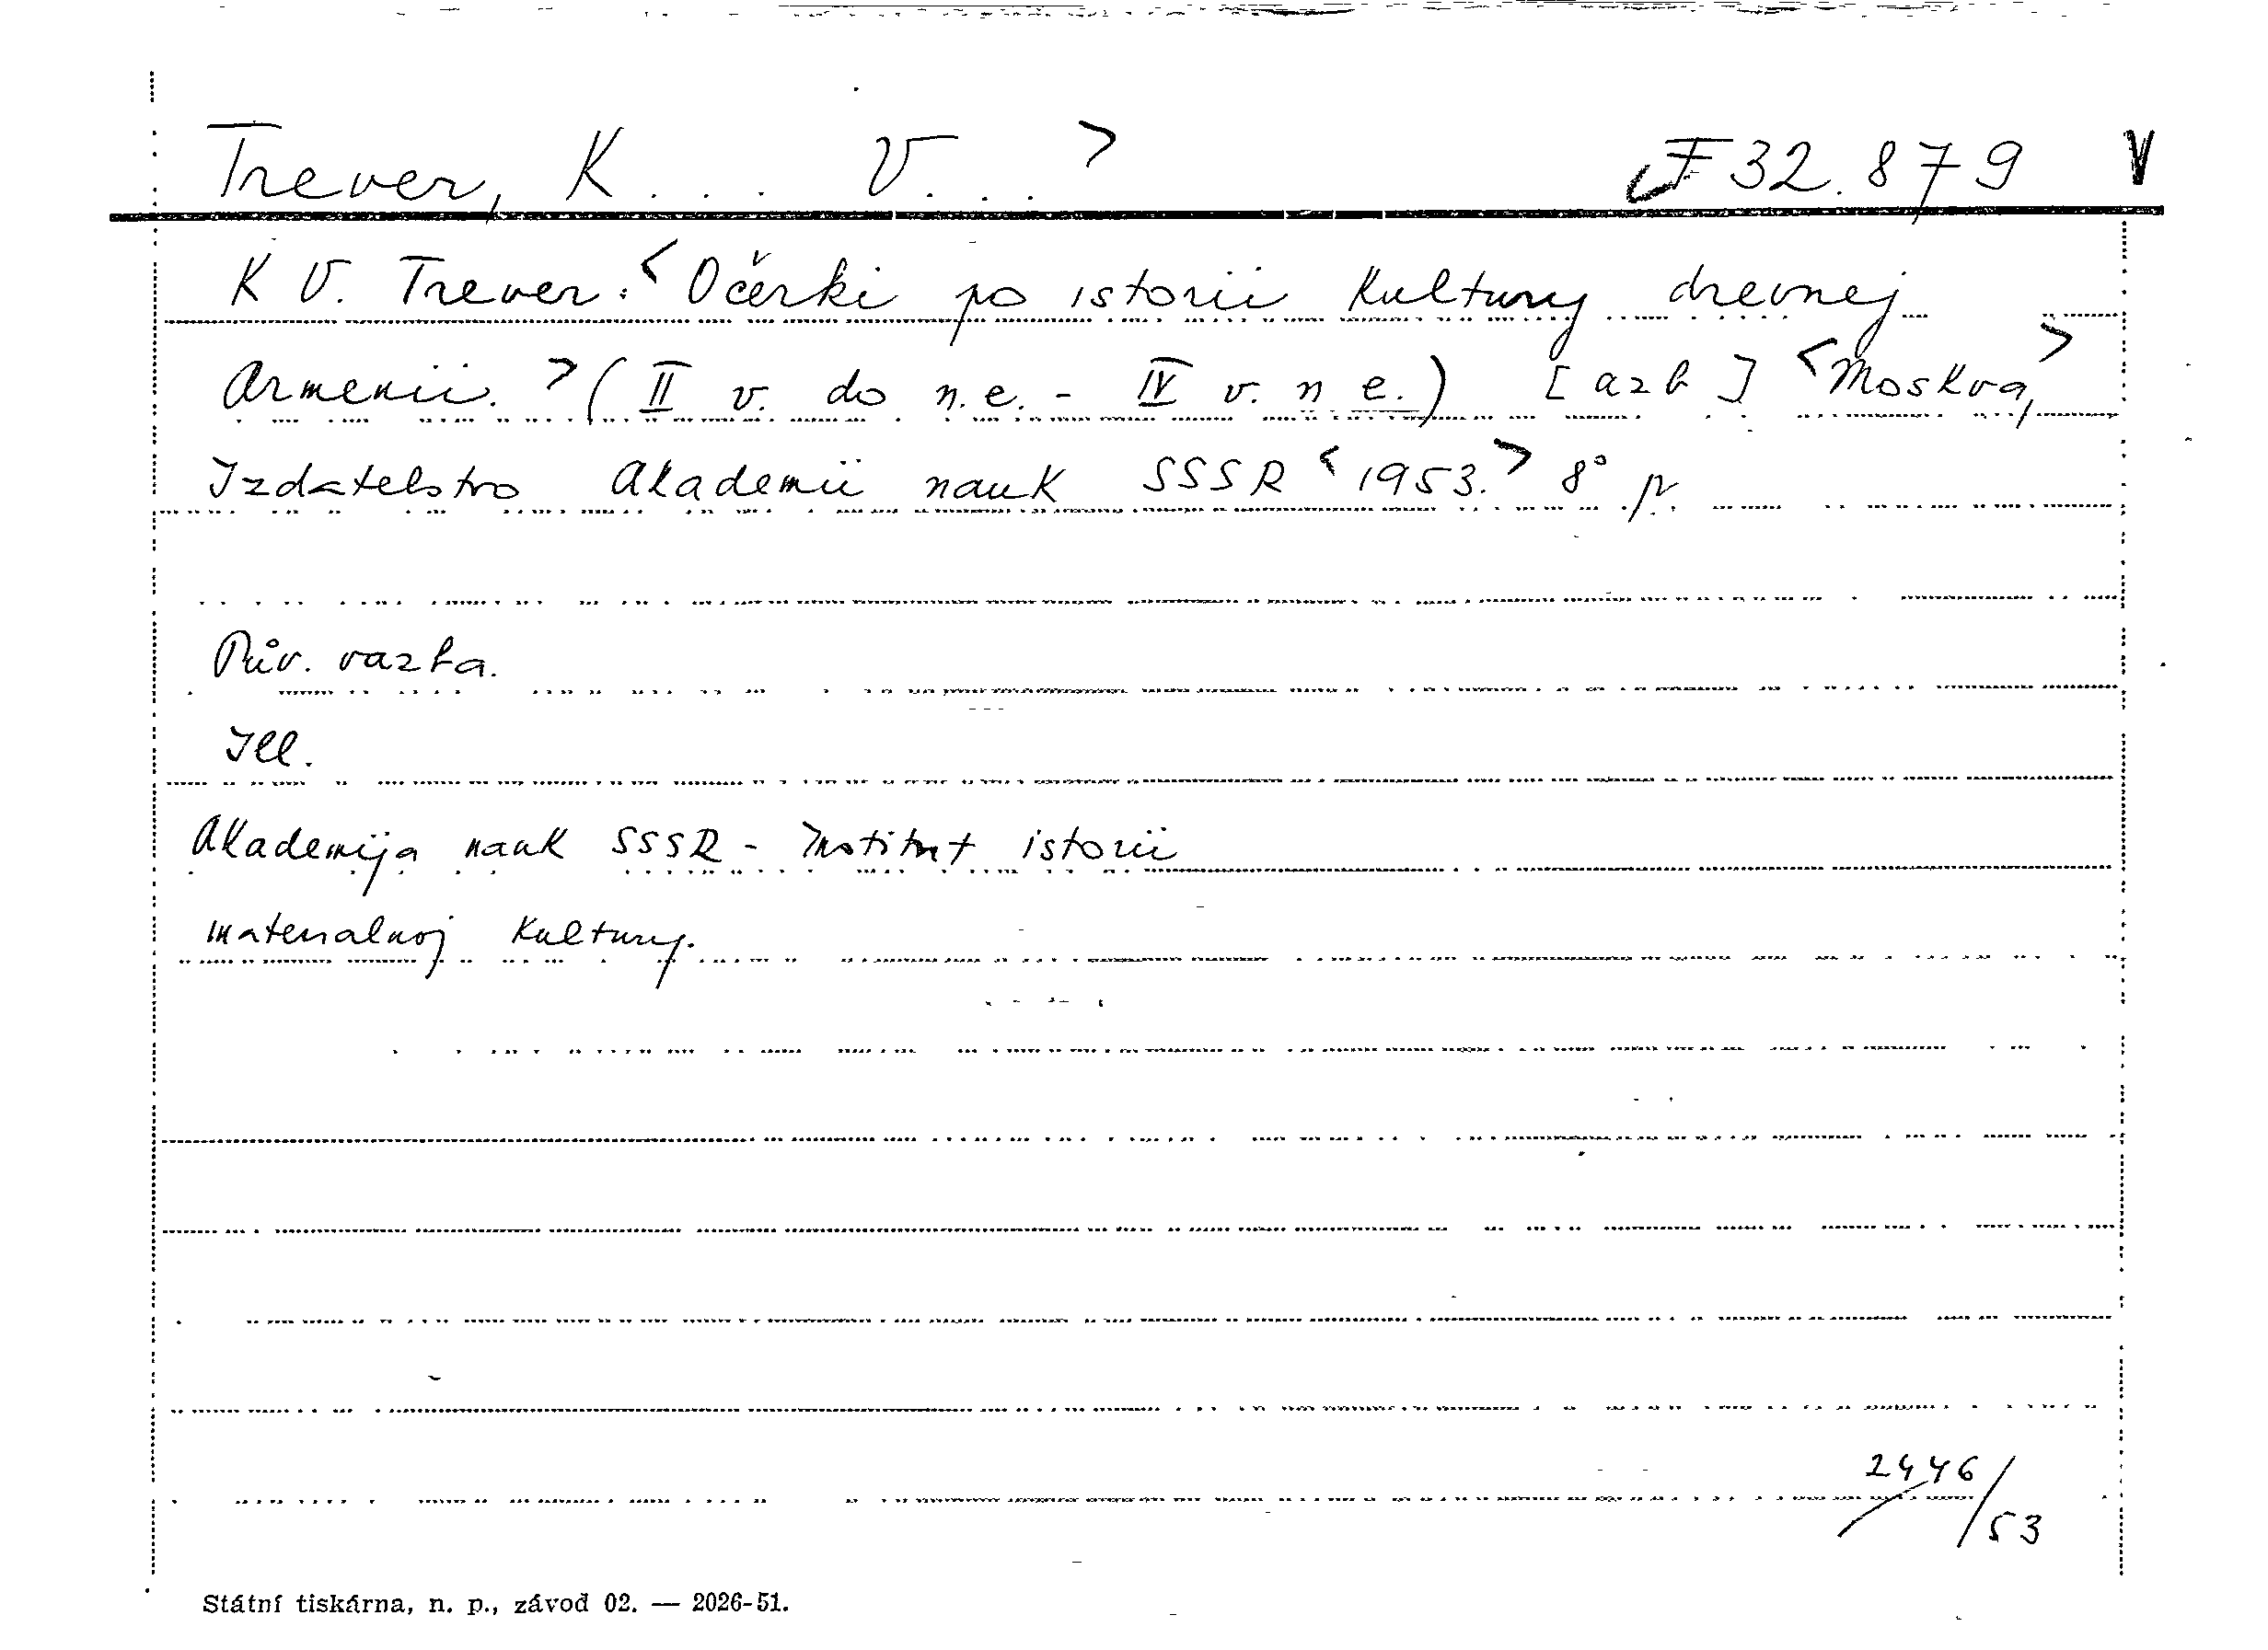 Trever, K . . . V. . . > F 32.879 V
K V. Trever: <Očerki po istorii kultury drevnej
Armenii.> (II v. do n. e. - IV v. n e.) [azb] <Moskva,>
Izdatelstvo Akademii nauk SSSR <1953.> 8°
Pův. vazba.
Ill.
Akademija nauk SSSR - Institut istorii
materialnoj kultury.
2446/53
Státní tiskárna, n. p., závod 02. — 2026-51.